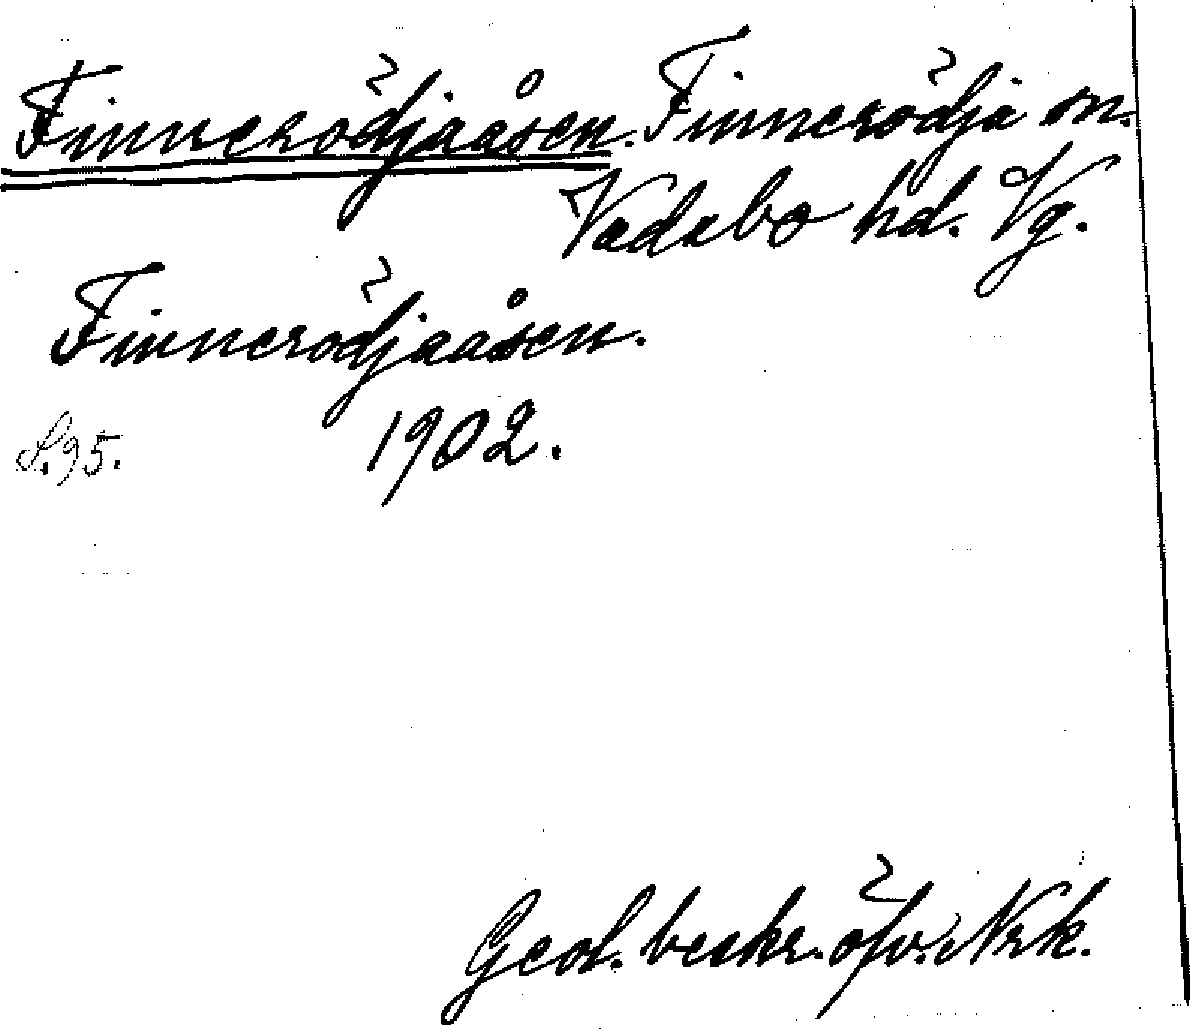 Finnerödjaåsen. Finnerödja sn.
Vadsbo hd. Vg.
Finnerödjaåsen.
S. 95. 1902.
Geol. beskr. öfv. Nrk.